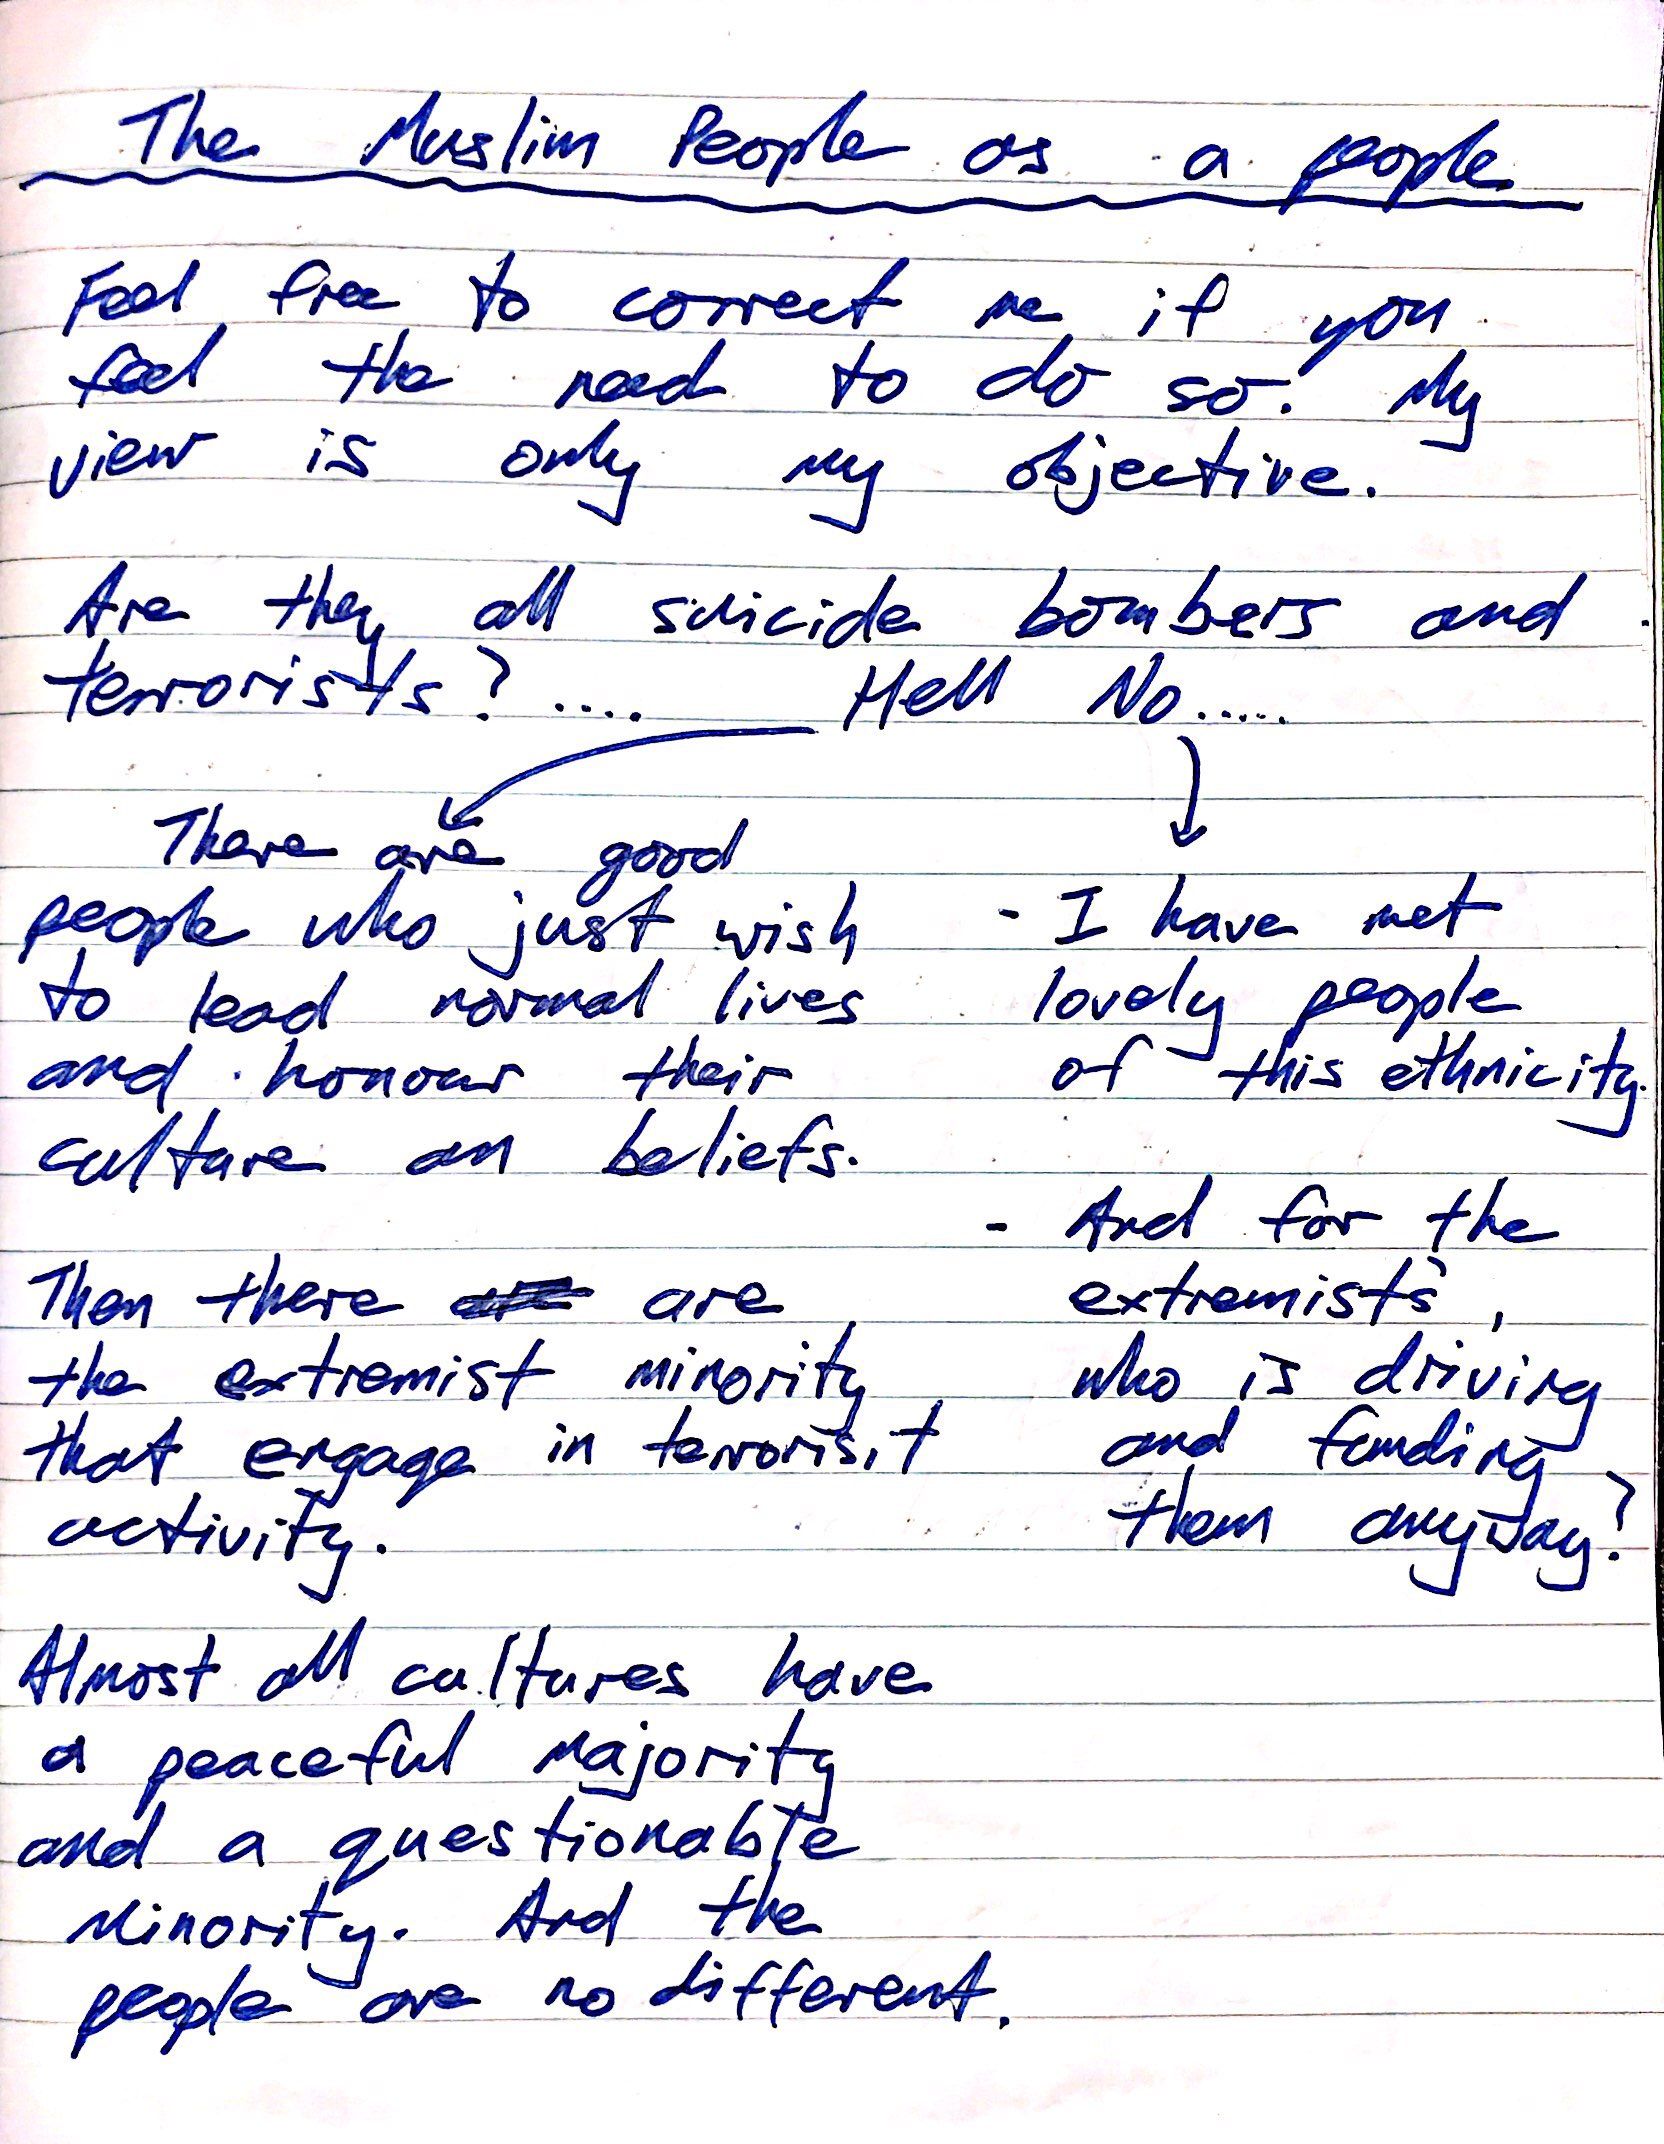 The Muslim People as a people
Feel free to correct me if you
feel the need to do so. My
view is only my objective.
Are they all suicide bombers and
terrorists? .... Hell No.....
There are good
people who just wish
to lead normal lives
and honour their
culture an beliefs.
Then there are
the extremist minority
that engage in terrorist
activity.
Almost all cultures have
a peaceful majority
and a questionable
minority. And the
people are no different.
- I have met
lovely people
of this ethnicity.
- And for the
extremists,
who is driving
and funding
them anyway?